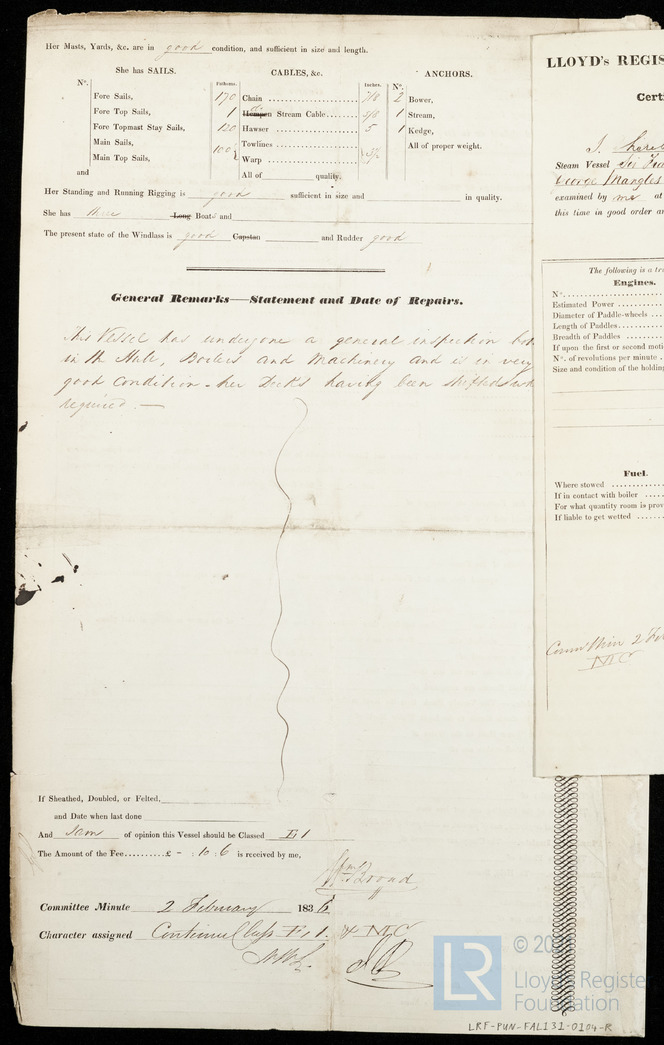 Her Masts, Yards, &c. are in good condition, and sufficient in size and length.
She has SAILS.
Nº.
Fore Sails,
Fore Top Sails,
Fore Topmast Stay Sails,
Main Sails,
Main Top Sails,
and
CABLES, &c.
Fathoms.
Inches.
170 Chain 7/8
1 Hempen Stream Cable 5/8
120 Hawser 5
100 Towlines
Warp
All of quality.
ANCHORS.
Nº.
2 Bower,
1 Stream,
1 Kedge,
All of proper weight.
Her Standing and Running Rigging is good sufficient in size and in quality.
She has three Long Boats and
The present state of the Windlass is good Capstan and Rudder good
General Remarks—Statement and Date of Repairs.
This Vessel has undergone a general inspection both
in the Hull, Boilers and Machinery and is in very
good Condition - her Decks having been shifted where
required. —
If Sheathed, Doubled, or Felted,
and Date when last done
And I am of opinion this Vessel should be Classed E 1
The Amount of the Fee £ - : 10 : 6 is received by me,
Wm. Broad
Committee Minute 2 February 1836
Character assigned Continued Class E 1. & MC
LLOYD's REGIS
Certi
I,
Steam Vessel Sir Fra
George Mangles
examined by me at
this time in good order an
The following is a tr
Engines.
Nº.
Estimated Power
Diameter of Paddle-wheels
Length of Paddles
Breadth of Paddles
If upon the first or second moti
Nº. of revolutions per minute
Size and condition of the holding
Fuel.
Where stowed
If in contact with boiler
For what quantity room is prov
If liable to get wetted
Comm Min 2 Feb
MC
LR
© 20
Lloyd's Register
Foundation
LRF-PUN-FAL131-0104-R